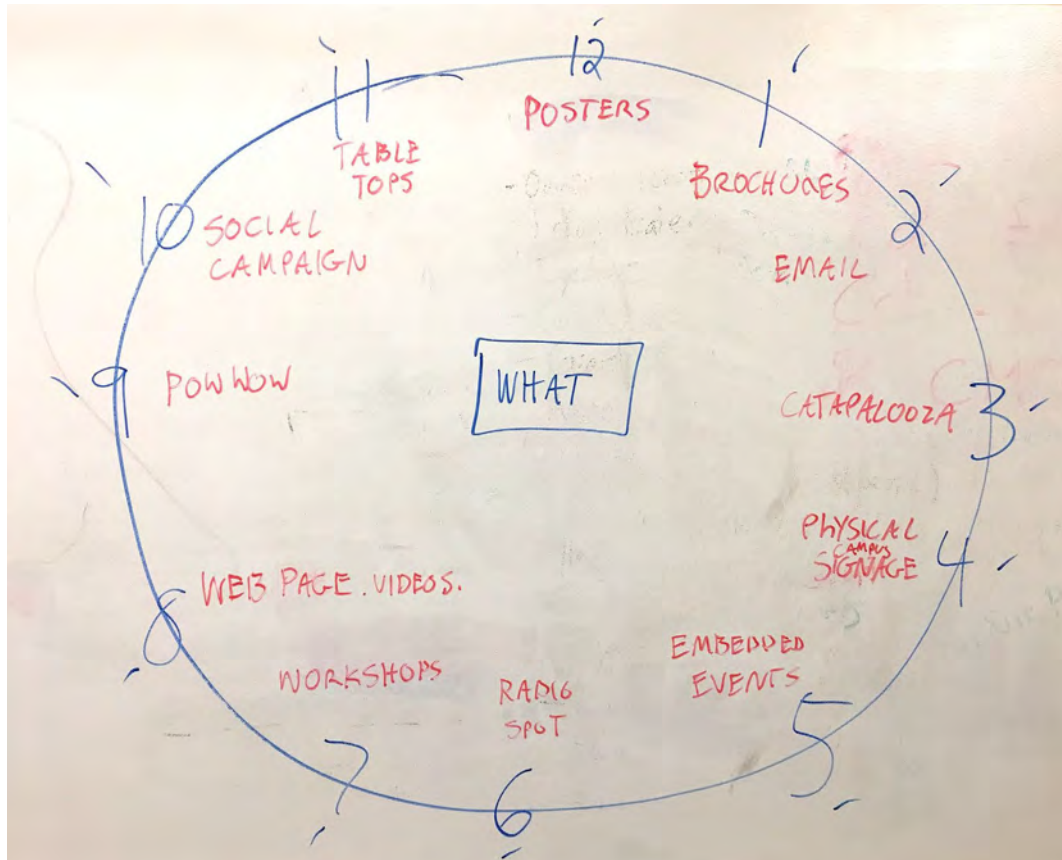 12
POSTERS
1
BROCHURES
2
EMAIL
3
CATAPALOOZA
4
PHYSICAL
CAMPUS
SIGNAGE
5
EMBEDDED
EVENTS
6
RADIO
SPOT
7
WORKSHOPS
8
WEB PAGE. VIDEOS.
9
POWWOW
10
SOCIAL
CAMPAIGN
11
TABLE
TOPS
WHAT